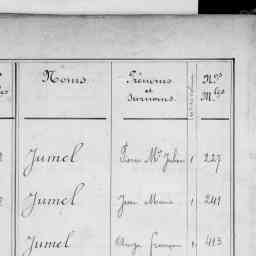 Noms. Prénoms et Surnoms. Nos Mles
Jumel Pierre Me Julien 1 227
Jumel Jean Marie 1 241
Jumel Ange François 1 413